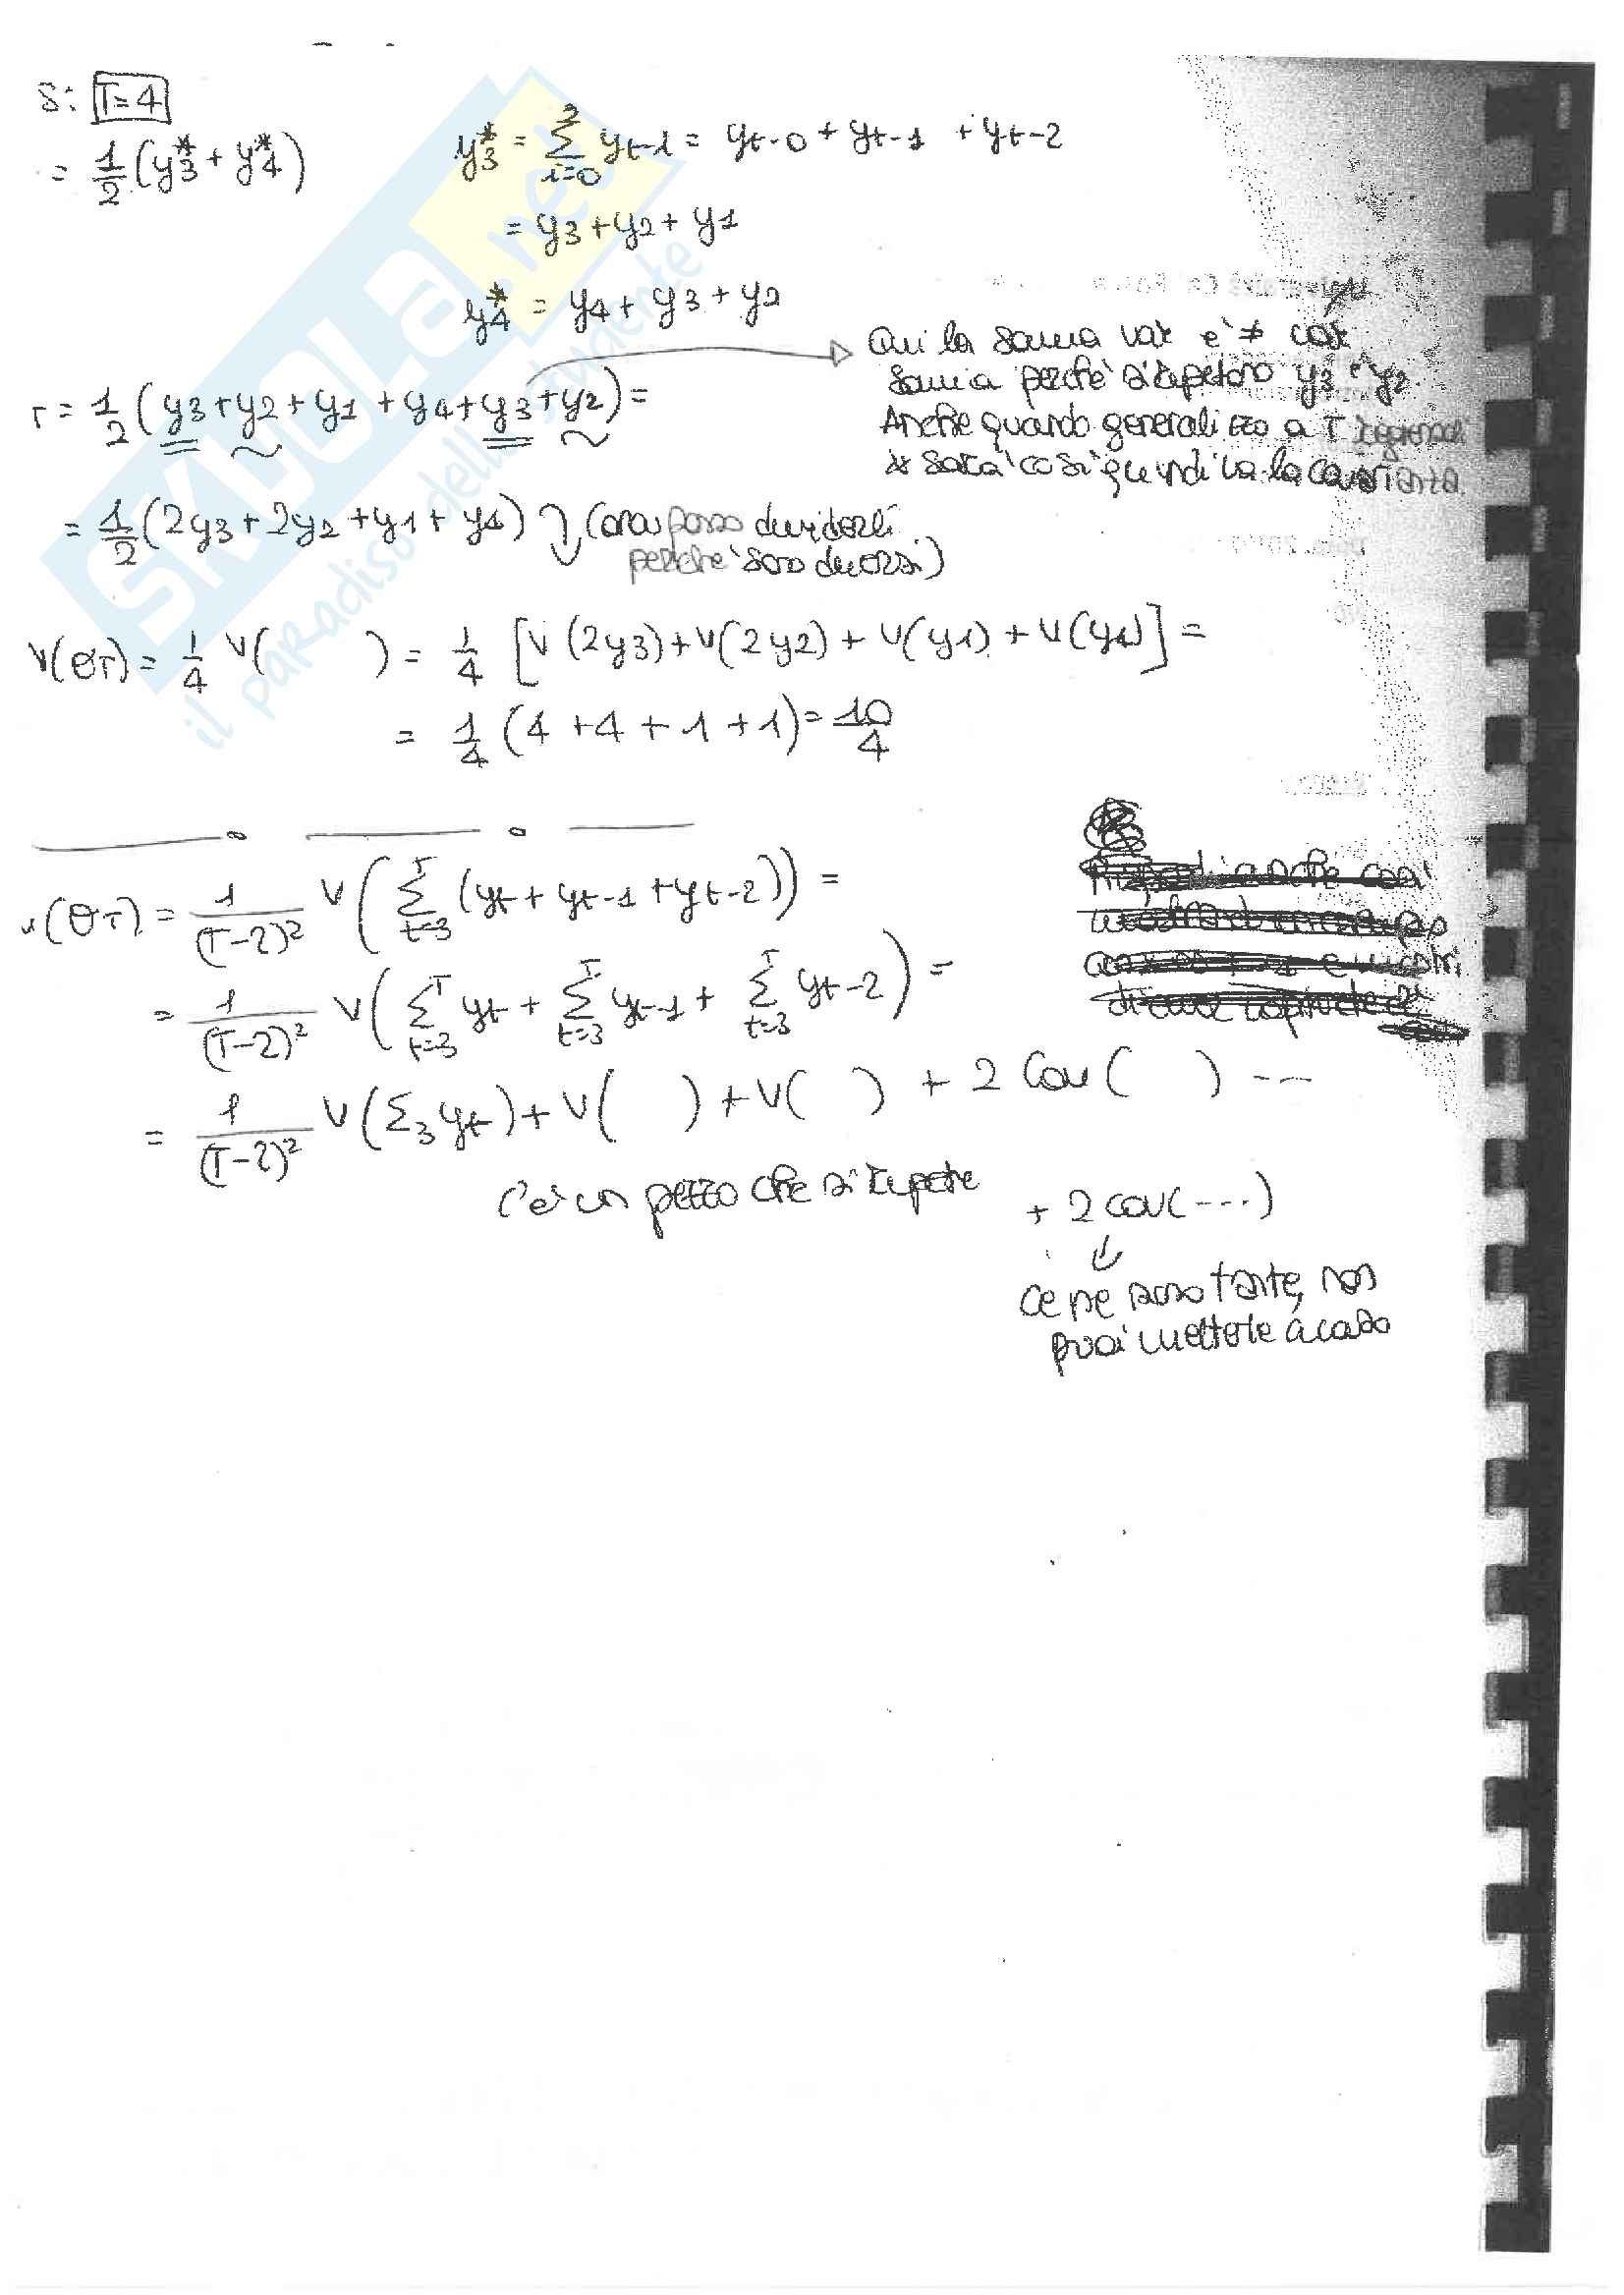 S: T=4
= 1/2 (y*3 + y*4)
y*3 = Σ i=0 2 yt-i = yt-0 + yt-1 + yt-2
= y3 + y2 + y1
y*4 = y4 + y3 + y2
Qui la somma var è ≠ var
somma perché si ripetono y3 e y2
Anche quando generalizzo a T
sarà così quindi va la covarianza
T = 1/2 (y3 + y2 + y1 + y4 + y3 + y2) =
= 1/2 (2y3 + 2y2 + y1 + y4) (ora posso dividerli
perché sono diversi)
V(θT) = 1/4 V( ) = 1/4 [V(2y3) + V(2y2) + V(y1) + V(y4)] =
= 1/4 (4 + 4 + 1 + 1) = 10/4
V(θT) = 1/(T-2)² V(Σ t=3 T (yt + yt-1 + yt-2)) =
= 1/(T-2)² V(Σ t=3 T yt + Σ t=3 T yt-1 + Σ t=3 T yt-2) =
= 1/(T-2)² V(Σ3 yt) + V( ) + V( ) + 2 Cov( ) ---
C'è un pezzo che si ripete
+ 2 cov(----)
ce ne sono tante, non
puoi metterle a caso
SKUOLA.net
il paradiso dello studente